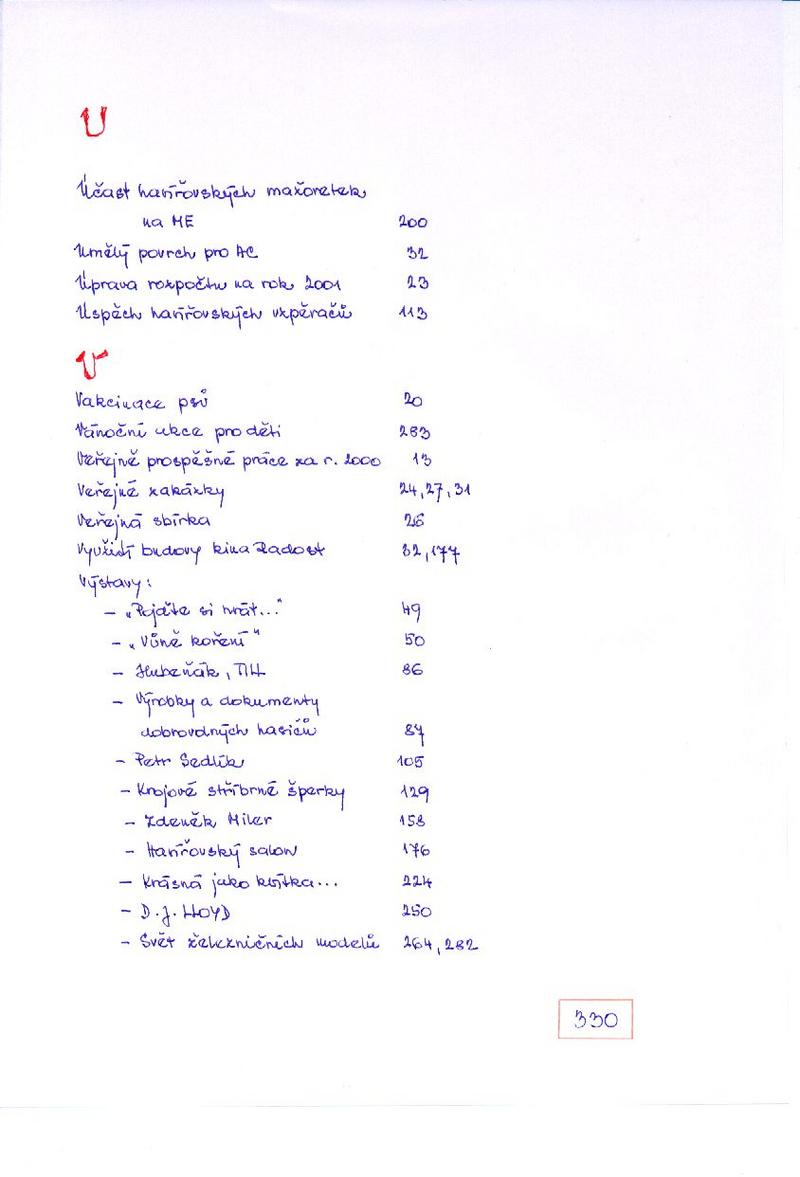 U
Účast havířovských mažoretek
na ME 200
Umělý povrch pro AC 32
Úprava rozpočtu na rok 2001 23
Úspěch havířovských vzpěračů 113
V
Vakcinace psů 20
Vánoční akce pro děti 283
Veřejně prospěšné práce za r. 2000 13
Veřejné zakázky 24, 27, 31
Veřejná sbírka 26
Využití budovy kina Radost 32, 177
Výstavy:
– „Pojďte si hrát..." 49
– „Vůně koření" 50
– Hubeňák, Till 86
– Výrobky a dokumenty
dobrovolných hasičů 87
– Petr Sedlík 105
– Krojové stříbrné šperky 129
– Zdeněk Miler 158
– Havířovský salon 176
– Krásná jako kvítka... 224
– D. J. LLOYD 250
– Svět železničních modelů 264, 282
330